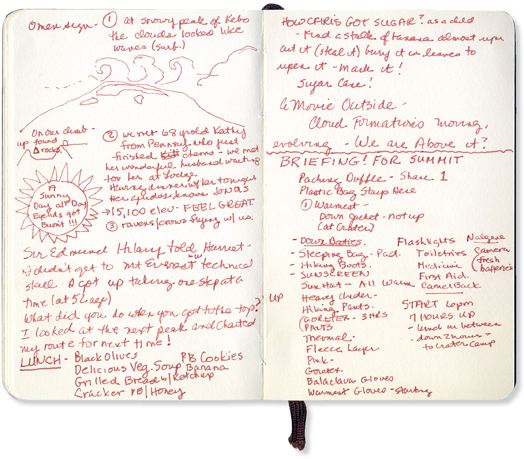 Omen sign - ① at snowy peak of Kebo
the clouds looked like
waves (surf.)
On our climb -
up found
rocks
② we met 68 yr old Kathy
from Penn, who just
finished - we met
her wonderful husband waiting
for her at Lodge
Having dinner w/ her tonight
Her guides know JONAS
→ 15,100 elev - FEEL GREAT
③ ravens/crows flying w/ us.
A
Sunny
Day all Day
Eyelids got
Burnt!!!
Sir Edmund Hilary told Harriet -
I didn't get to Mt Everest w technical
skill I got up taking one step at a
time (at 5 age)
What did you do when you got to the top?
I looked at the next peak and charted
my route for next time!
LUNCH - Black Olives PB Cookies
Delicious Veg. Soup Banana
Grilled Bread w/ Ketchup
Cracker PB/Honey
HOW CHRIS GOT SUGAR? as a child
- Find a stalk of banana almost ripe
cut it (steal it) bury it in leaves to
ripen it - mark it!
Sugar Cane!
A Movie Outside -
Cloud Formations moving,
evolving - We are Above it?
BRIEFING! FOR SUMMIT
Packing Duffle - Share 1
Plastic Bag Stays Here
① Warmest -
Down Jacket - not up
(at Crater)
- Down Booties. Flashlights Nalgene
- Sleeping Bag - Pad. Toiletries Camera
- Hiking Boots. Medicine (fresh
- SUNSCREEN First Aid. batteries
Sun Hat - All Warm CamelBack
UP Heavy Under -
Hiking Pants. START 10pm
(GORETEX - SHRS 7 HOURS UP
PANTS - Unch in between
Thermal - - down 2 hours -
Fleece Layer to Crater Camp
Pink -
Goretex
Balaclava Gloves
Warmest Gloves - starting